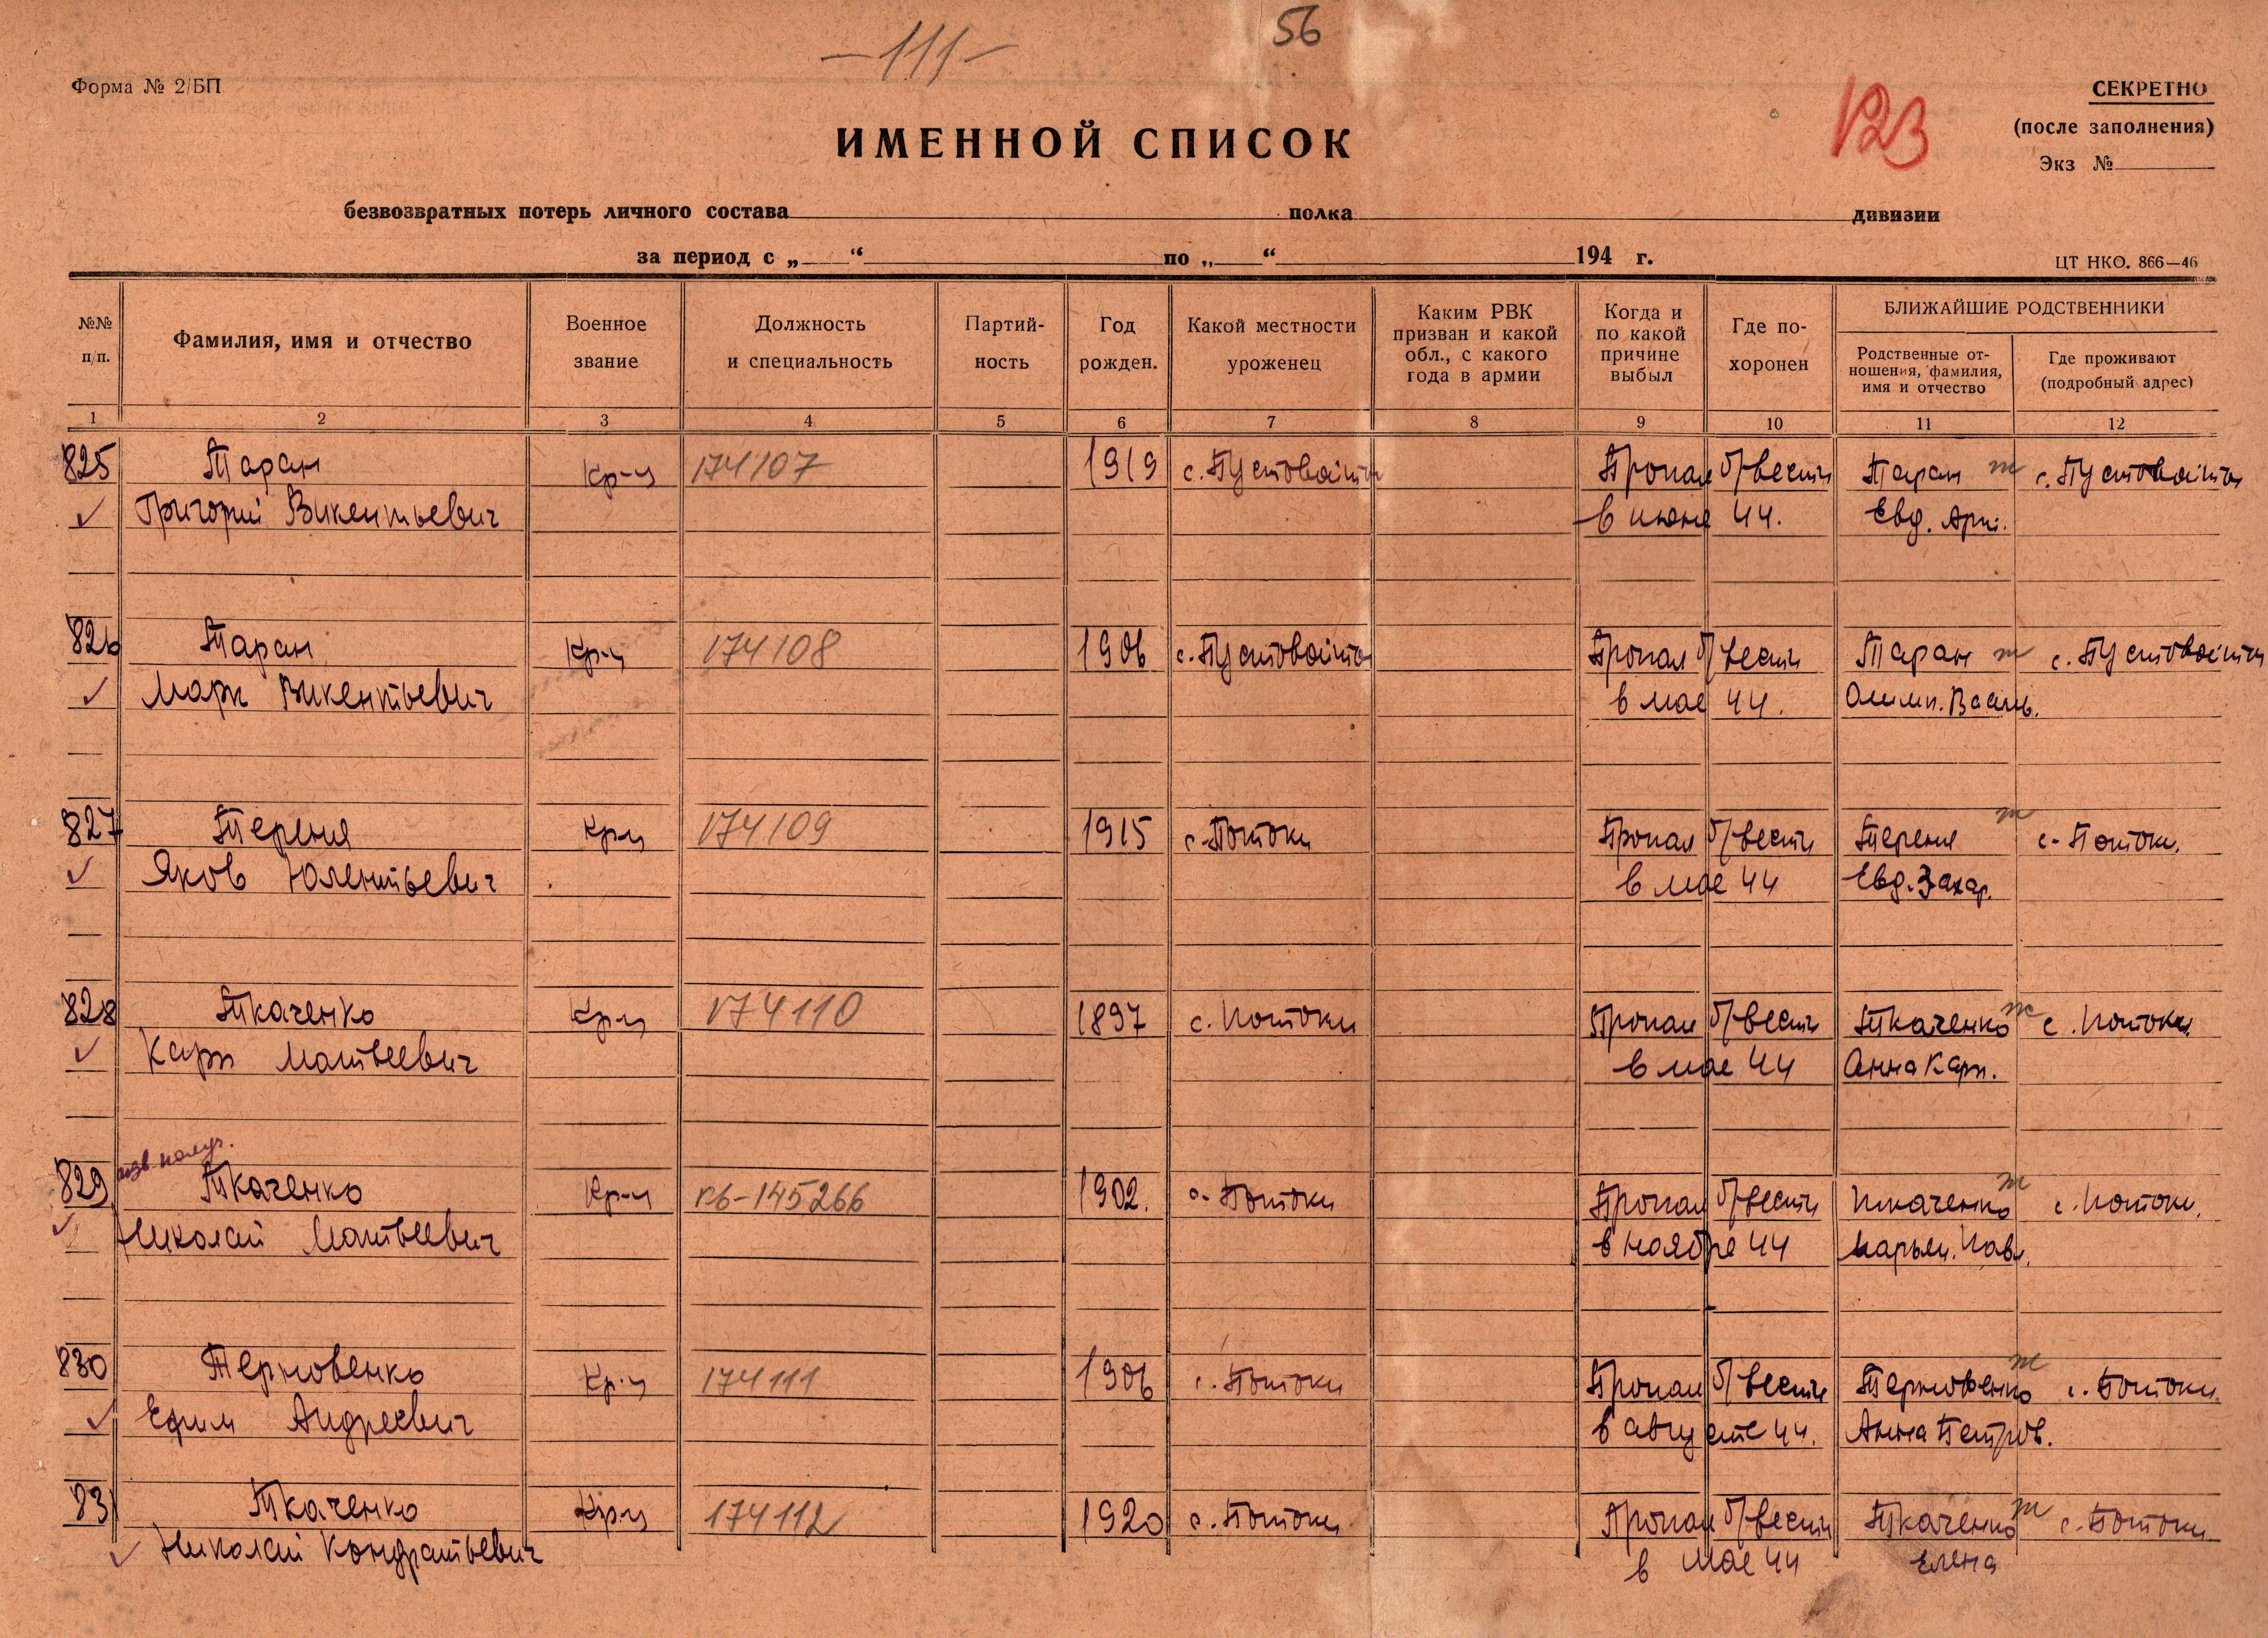 -111-
56
Форма № 2/БП
СЕКРЕТНО
123
(после заполнения)
ИМЕННОЙ СПИСОК
Экз №
безвозвратных потерь личного состава полка дивизии
за период с „ “ по „ “ 194 г.
ЦТ НКО. 866—46
№№ п/п.
Фамилия, имя и отчество
Военное звание
Должность и специальность
Партий-ность
Год рожден.
Какой местности уроженец
Каким РВК призван и какой обл., с какого года в армии
Когда и по какой причине выбыл
Где по-хоронен
БЛИЖАЙШИЕ РОДСТВЕННИКИ
Родственные от-ношения, фамилия, имя и отчество
Где проживают (подробный адрес)
1 2 3 4 5 6 7 8 9 10 11 12
825 Таран Кр-ц 174107 1919 с. Пустовойты Пропал б/вести Таран ж с. Пустовойты
Григорий Викентьевич в июне 44. Евд.
826 Таран Кр-ц 174108 1906 с. Пустовойты Пропал б/вести Таран ж с. Пустовойты
Марк Викентьевич в мае 44. Олимп. Василь.
827 Тереня Кр-ц 174109 1915 с. Потоки Пропал б/вести Тереня ж с. Потоки.
Яков в мае 44 Евд. Захар.
828 Ткаченко Кр-ц 174110 1897 с. Потоки Пропал б/вести Ткаченко ж с. Потоки
Карп Матвеевич в мае 44 Анна Карп.
изв. получ.
829 Ткаченко Кр-ц кв-145266 1902. с. Потоки Пропал б/вести Ткаченко ж с. Потоки.
Николай Матвеевич в ноябре 44 Марьян. Пав.
830 Терновенко Кр-ц 174111 1906 с. Потоки Пропал б/вести Терновенко ж с. Потоки.
Ефим Андреевич в августе 44. Анна Петров.
831 Ткаченко Кр-ц 174112 1920 с. Потоки Пропал б/вести Ткаченко ж с. Потоки
Николай Кондратьевич в мае 44 Елена